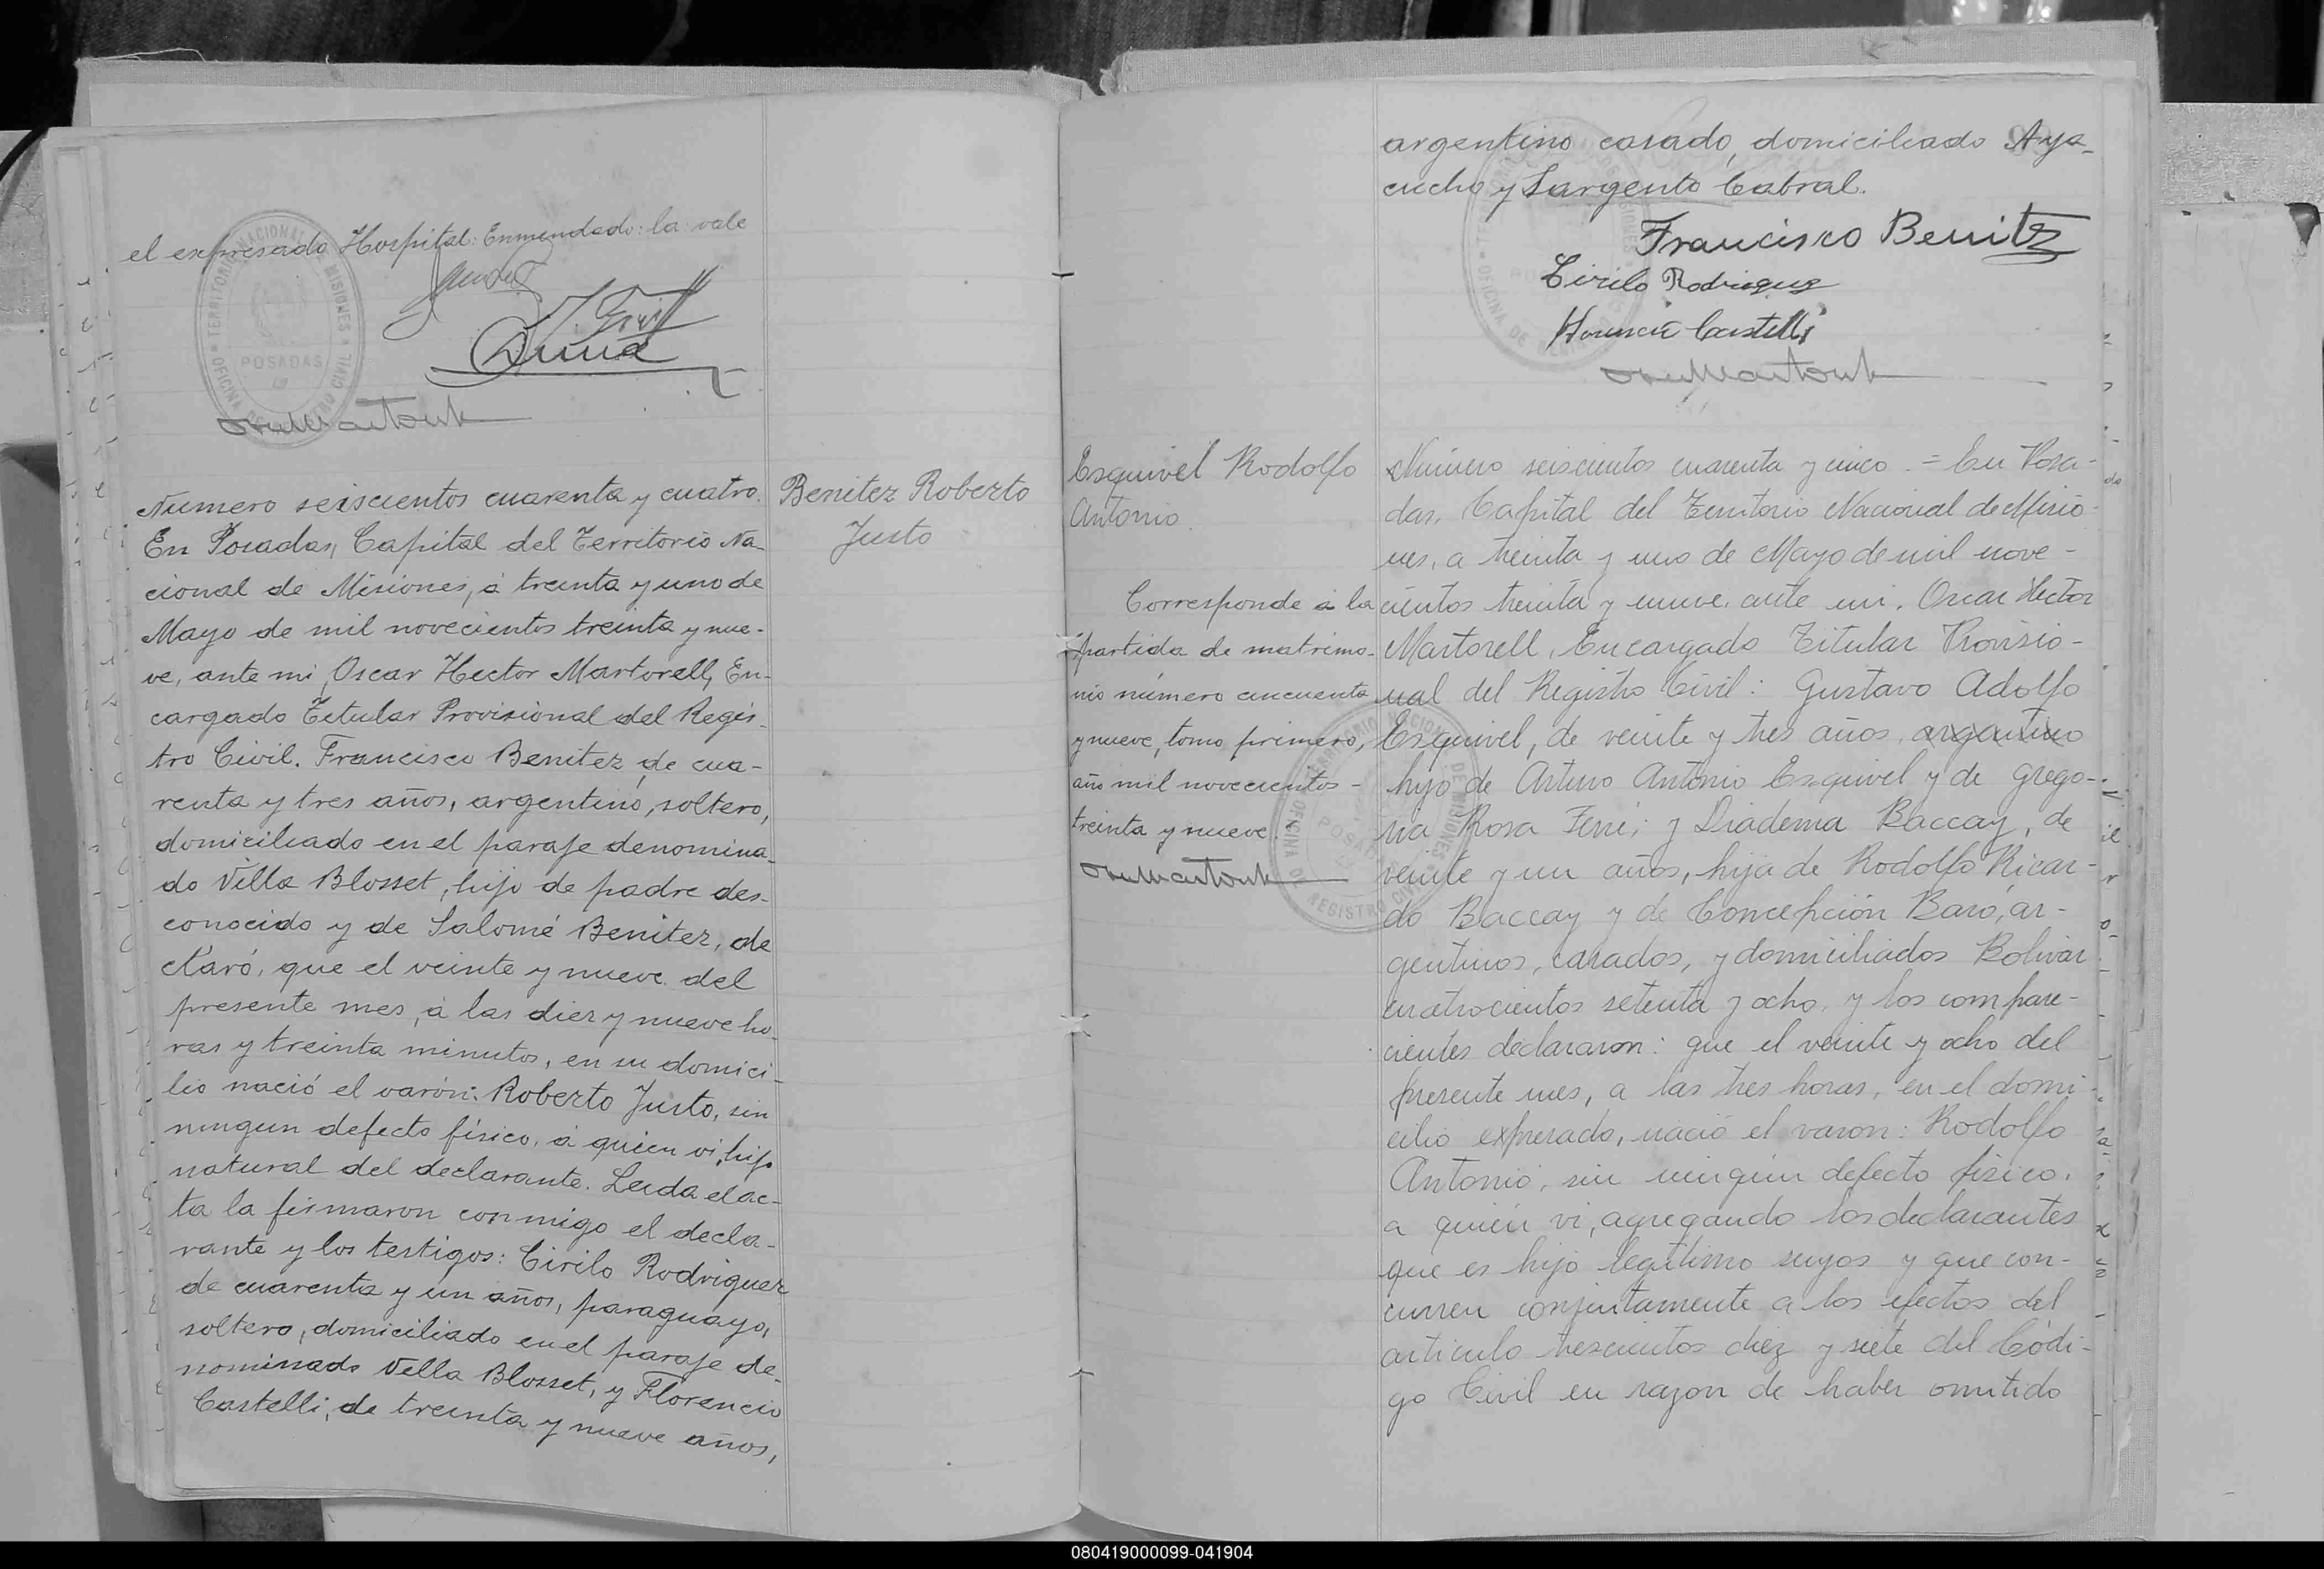 el expresado Hospital: Enmendado: la: vale
TERRITORIO NACIONAL DE MISIONES
POSADAS
OFICINA DE REGISTRO CIVIL
Numero seiscientos cuarenta y cuatro.
En Posadas, Capital del Territorio Na-
cional de Misiones, á treinta y uno de
Mayo de mil novecientos treinta y nue-
ve, ante mi, Oscar Hector Martorell, En-
cargado Titular Provisional del Regis-
tro Civil. Francisco Benitez, de cua-
renta y tres años, argentino, soltero,
domiciliado en el paraje denomina-
do Villa Blosset, hijo de padre des-
conocido y de Salomé Benitez, de
claró, que el veinte y nueve del
presente mes, á las diez y nueve ho-
ras y treinta minutos, en su domici-
lio nació el varón: Roberto Justo, sin
ningun defecto físico, á quien vi, hijo
natural del declarante. Leida el ac-
ta la firmaron conmigo el decla-
rante y los testigos: Cirilo Rodriguez
de cuarenta y un años, paraguayo,
soltero, domiciliado en el paraje de-
nominado Villa Blosset, y Florencio
Castelli, de treinta y nueve años,
Benitez Roberto
Justo
argentino casado, domiciliado Aya-
cucho y Sargento Cabral.
Francisco Benitez
Cirilo Rodriguez
Florencio Castelli
Esquivel Rodolfo
Antonio.
Corresponde á la
partida de matrimo-
nio número cincuenta
y nueve, tomo primero,
año mil novecientos -
treinta y nueve.
TERRITORIO NACIONAL DE MISIONES
POSADAS
OFICINA DE REGISTRO CIVIL
Número seiscientos cuarenta y cinco. = En Posa-
das, Capital del Territorio Nacional de Misio-
nes, a treinta y uno de Mayo de mil nove-
cientos treinta y nueve, ante mi, Oscar Hector
Martorell, Encargado Titular Provisio-
nal del Registro Civil: Gustavo Adolfo
Esquivel, de veinte y tres años, argentino
hijo de Arturo Antonio Esquivel y de Grego-
ria Rosa Ferré; y Diadema Baccay, de
veinte y un años, hija de Rodolfo Ricar-
do Baccay y de Concepción Baró, ar-
gentinos, casados, y domiciliados Bolivar
cuatrocientos setenta y ocho, y los compare-
cientes declararon: que el veinte y ocho del
presente mes, a las tres horas, en el domi-
cilio expresado, nació el varon: Rodolfo
Antonio, sin ningún defecto físico,
a quien vi, agregando los declarantes
que es hijo legítimo suyos y que con-
curren conjuntamente a los efectos del
articulo trescientos diez y siete del Códi-
go Civil en razon de haber omitido
080419000099-041904